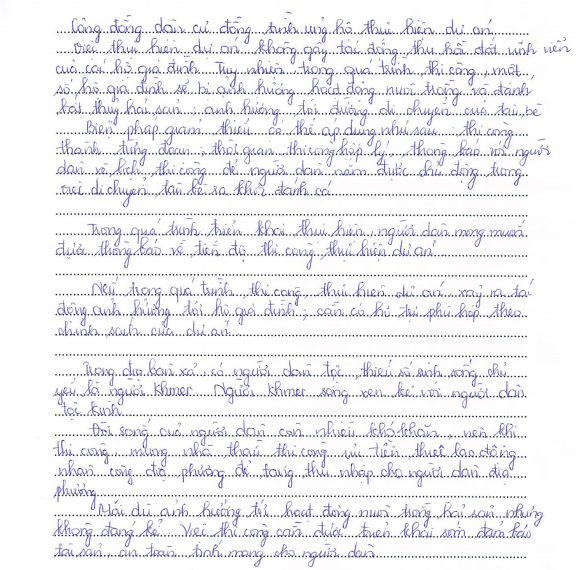 Cộng đồng dân cư đồng tình ủng hộ thực hiện dự án.
Việc thực hiện dự án không gây tác động thu hồi đất vĩnh viễn
của các hộ gia đình. Tuy nhiên trong quá trình thi công, một
số hộ gia đình sẽ bị ảnh hưởng hoạt động nuôi trồng và đánh
bắt thủy hải sản; ảnh hưởng tới đường di chuyển của tàu, bè
Biện pháp giảm thiểu có thể áp dụng như sau: thi công
thành từng đoạn; thời gian thi công hợp lý, thông báo với người
dân về lịch thi công để người dân nắm được chủ động trong
việc di chuyển, tàu bè ra khơi đánh cá.
Trong quá trình triển khai thực hiện, người dân mong muốn
được thông báo về tiến độ thi công, thực hiện dự án.
Nếu trong quá trình thi công, thực hiện dự án xảy ra tác
động ảnh hưởng tới hộ gia đình; cần có hỗ trợ phù hợp theo
chính sách của dự án.
Trong địa bàn xã, có người dân tộc thiểu số sinh sống chủ
yếu là người Khmer. Người Khmer sống xen kẽ với người dân
tộc kinh.
Đời sống của người dân còn nhiều khó khăn, nên khi
thi công mong nhà thầu thi công ưu tiên thuê lao động
nhân công địa phương để tăng thu nhập cho người dân địa
phương.
Mặc dù ảnh hưởng tới hoạt động nuôi trồng hải sản nhưng
không đáng kể. Việc thi công cần được triển khai sớm đảm bảo
tài sản, an toàn tính mạng cho người dân.